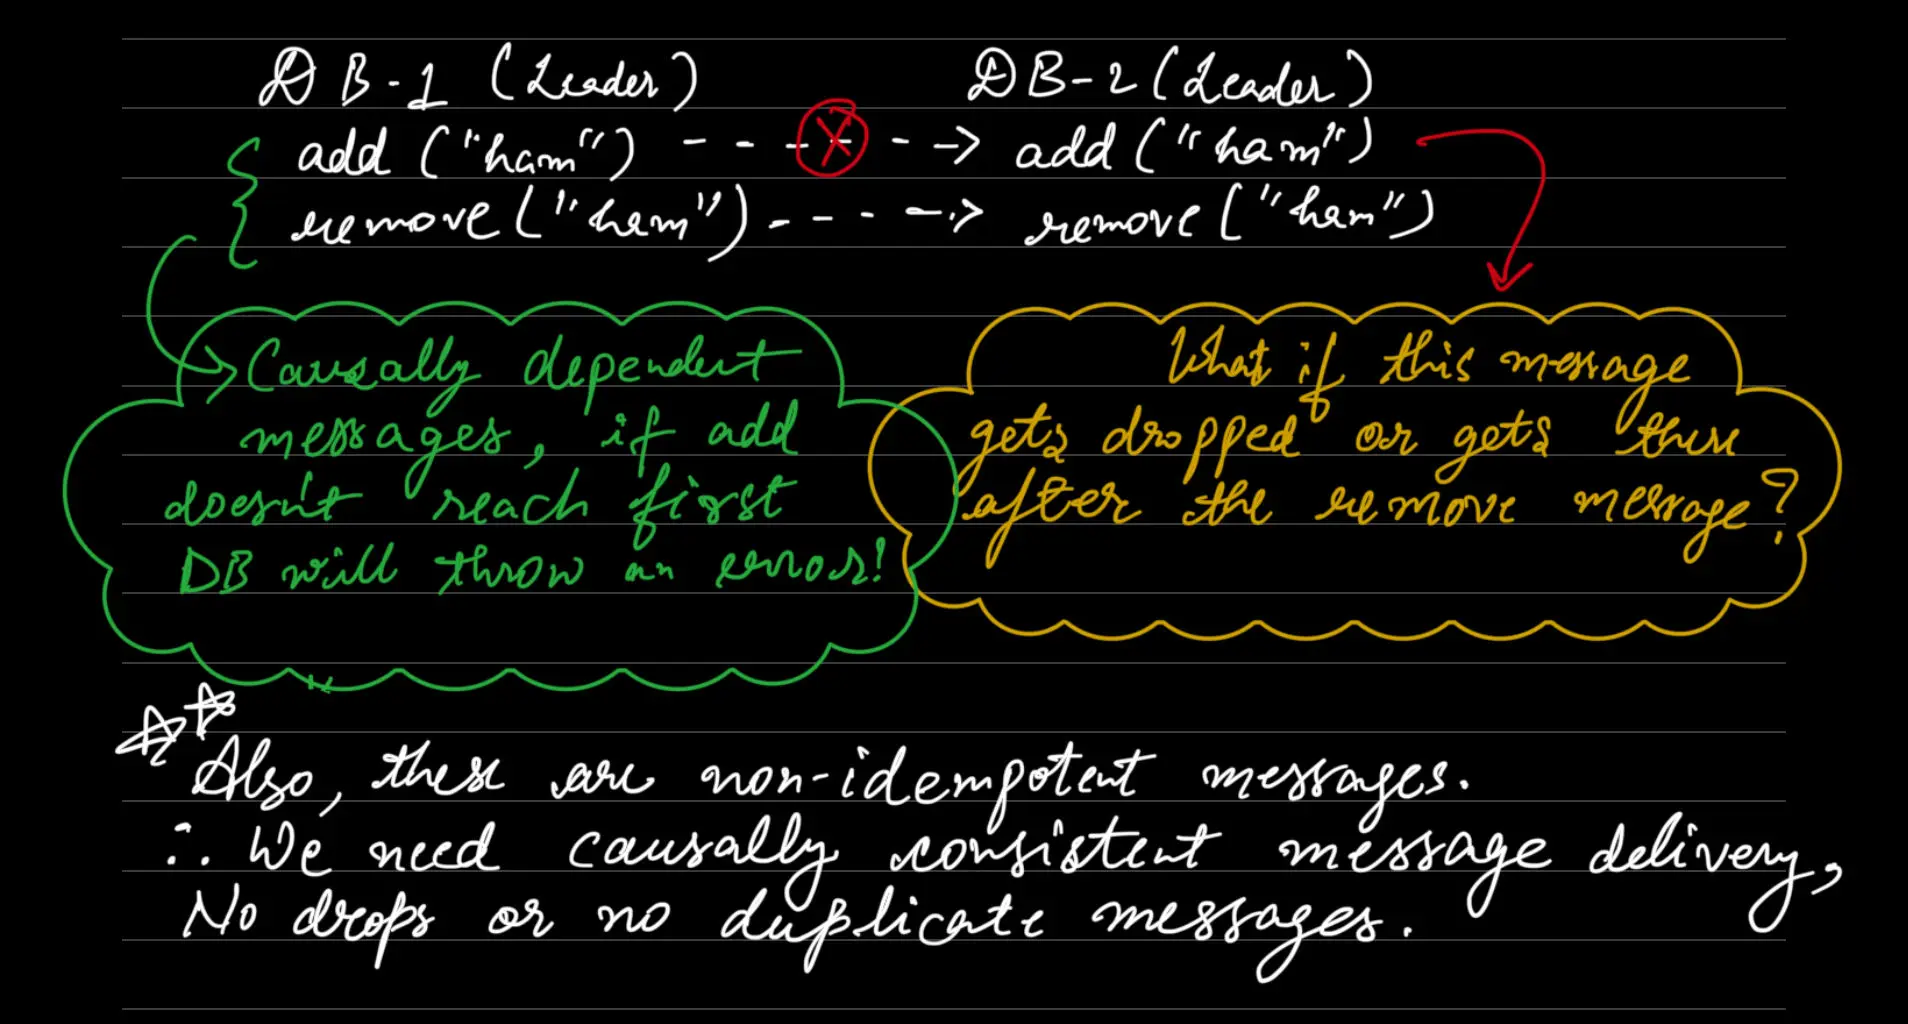 DB-1 (Leader) DB-2 (Leader)
add ("ham") - - - - - -> add ("ham")
remove ("ham") - - - - -> remove ("ham")
Causally dependent
messages, if add
doesn't reach first
DB will throw an error!
What if this message
gets dropped or gets there
after the remove message?
Also, these are non-idempotent messages.
∴ We need causally consistent message delivery,
No drops or no duplicate messages.